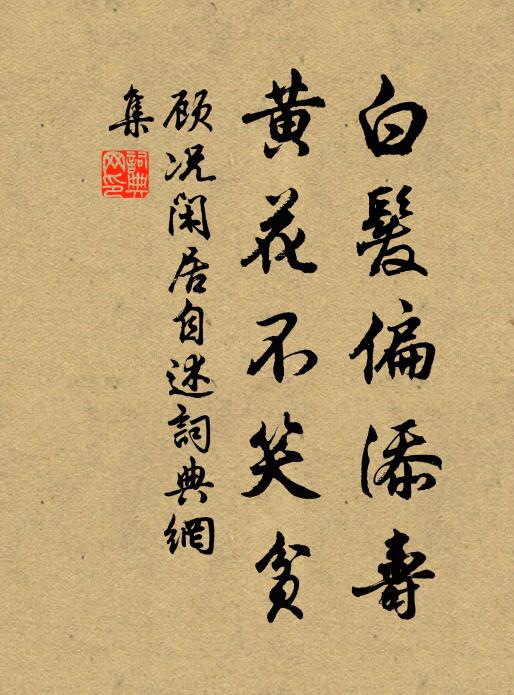 白髮偏添壽
黃花不笑貧
顾况閑居自述詞典網
集
詞典
网印